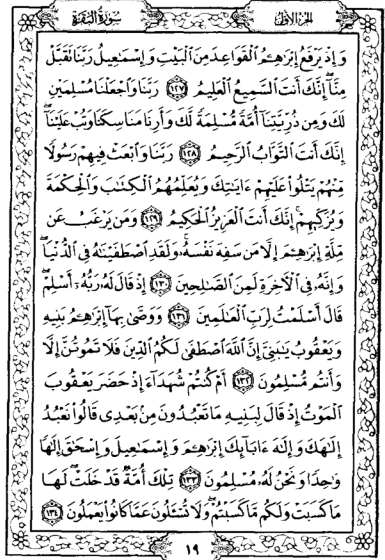 سورة البقرة
الجزء الأول
وَإِذْ يَرْفَعُ إِبْرَٰهِـۧمُ ٱلْقَوَاعِدَ مِنَ ٱلْبَيْتِ وَإِسْمَٰعِيلُ رَبَّنَا تَقَبَّلْ
مِنَّآ ۖ إِنَّكَ أَنتَ ٱلسَّمِيعُ ٱلْعَلِيمُ ١٢٧ رَبَّنَا وَٱجْعَلْنَا مُسْلِمَيْنِ
لَكَ وَمِن ذُرِّيَّتِنَآ أُمَّةً مُّسْلِمَةً لَّكَ وَأَرِنَا مَنَاسِكَنَا وَتُبْ عَلَيْنَآ ۖ
إِنَّكَ أَنتَ ٱلتَّوَّابُ ٱلرَّحِيمُ ١٢٨ رَبَّنَا وَٱبْعَثْ فِيهِمْ رَسُولًا
مِّنْهُمْ يَتْلُوا۟ عَلَيْهِمْ ءَايَٰتِكَ وَيُعَلِّمُهُمُ ٱلْكِتَٰبَ وَٱلْحِكْمَةَ
وَيُزَكِّيهِمْ ۚ إِنَّكَ أَنتَ ٱلْعَزِيزُ ٱلْحَكِيمُ ١٢٩ وَمَن يَرْغَبُ عَن
مِّلَّةِ إِبْرَٰهِـۧمَ إِلَّا مَن سَفِهَ نَفْسَهُۥ ۚ وَلَقَدِ ٱصْطَفَيْنَٰهُ فِى ٱلدُّنْيَا ۖ
وَإِنَّهُۥ فِى ٱلْـَٔاخِرَةِ لَمِنَ ٱلصَّٰلِحِينَ ١٣٠ إِذْ قَالَ لَهُۥ رَبُّهُۥٓ أَسْلِمْ ۖ
قَالَ أَسْلَمْتُ لِرَبِّ ٱلْعَٰلَمِينَ ١٣١ وَوَصَّىٰ بِهَآ إِبْرَٰهِـۧمُ بَنِيهِ
وَيَعْقُوبُ يَٰبَنِىَّ إِنَّ ٱللَّهَ ٱصْطَفَىٰ لَكُمُ ٱلدِّينَ فَلَا تَمُوتُنَّ إِلَّا
وَأَنتُم مُّسْلِمُونَ ١٣٢ أَمْ كُنتُمْ شُهَدَآءَ إِذْ حَضَرَ يَعْقُوبَ
ٱلْمَوْتُ إِذْ قَالَ لِبَنِيهِ مَا تَعْبُدُونَ مِنۢ بَعْدِى قَالُوا۟ نَعْبُدُ
إِلَٰهَكَ وَإِلَٰهَ ءَابَآئِكَ إِبْرَٰهِـۧمَ وَإِسْمَٰعِيلَ وَإِسْحَٰقَ إِلَٰهًا
وَٰحِدًا وَنَحْنُ لَهُۥ مُسْلِمُونَ ١٣٣ تِلْكَ أُمَّةٌ قَدْ خَلَتْ ۖ لَهَا
مَا كَسَبَتْ وَلَكُم مَّا كَسَبْتُمْ ۖ وَلَا تُسْـَٔلُونَ عَمَّا كَانُوا۟ يَعْمَلُونَ ١٣٤
١٩